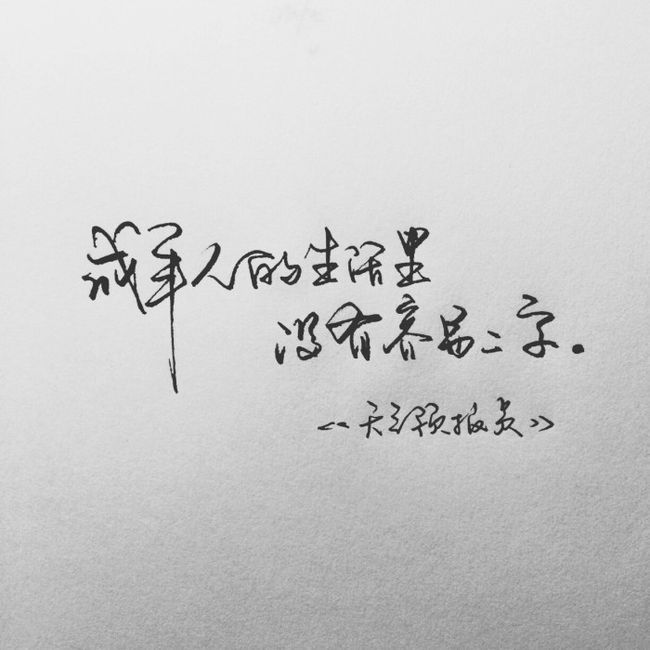 成年人的生活里
没有容易二字。
《天气预报员》